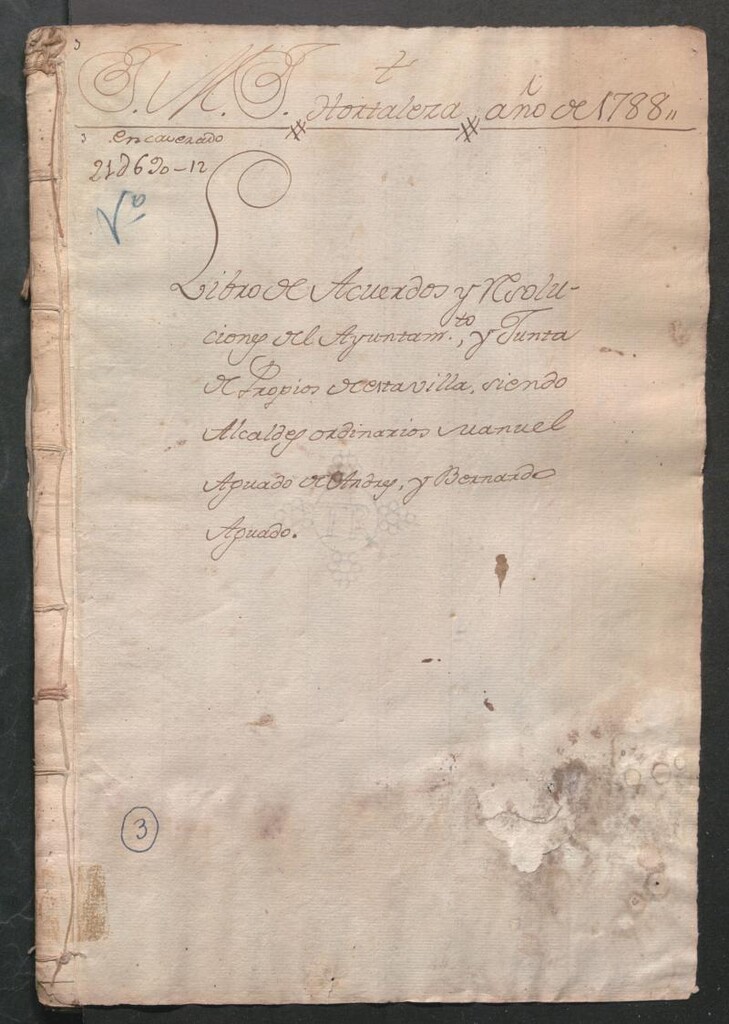 †
J. M. J. Hortaleza año de 1788
encavezado
21d690-12
Vº
Libro de Acuerdos y Resolu-
ciones del Ayuntam.to, y Junta
de Propios de esta villa, siendo
Alcaldes ordinarios Manuel
Aguado de Andres, y Bernardo
Aguado.
3